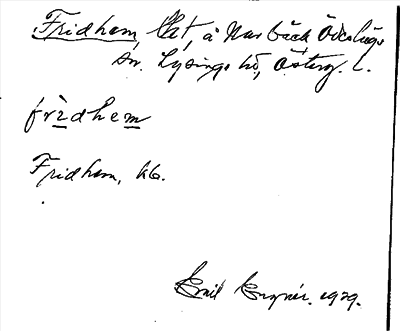 Fridhem, lht, å Narbäck Ödeshögs
sn. Lysings hd, Österg. L.
fri̲dhem̲
Fridhem, kb.
Emil Engnér. 1929.